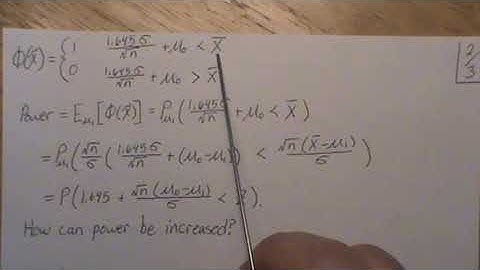 Φ(X⃗) = { 1   1.645σ/√n + μ₀ < X̄
0   1.645σ/√n + μ₀ > X̄
2/3
Power = E_μ₁[Φ(X⃗)] = P_μ₁(1.645σ/√n + μ₀ < X̄)
= P_μ₁(√n/σ (1.645σ/√n + (μ₀-μ₁) < √n(X̄-μ₁)/σ)
= P(1.645 + √n(μ₀-μ₁)/σ < ).
How can power be increased?